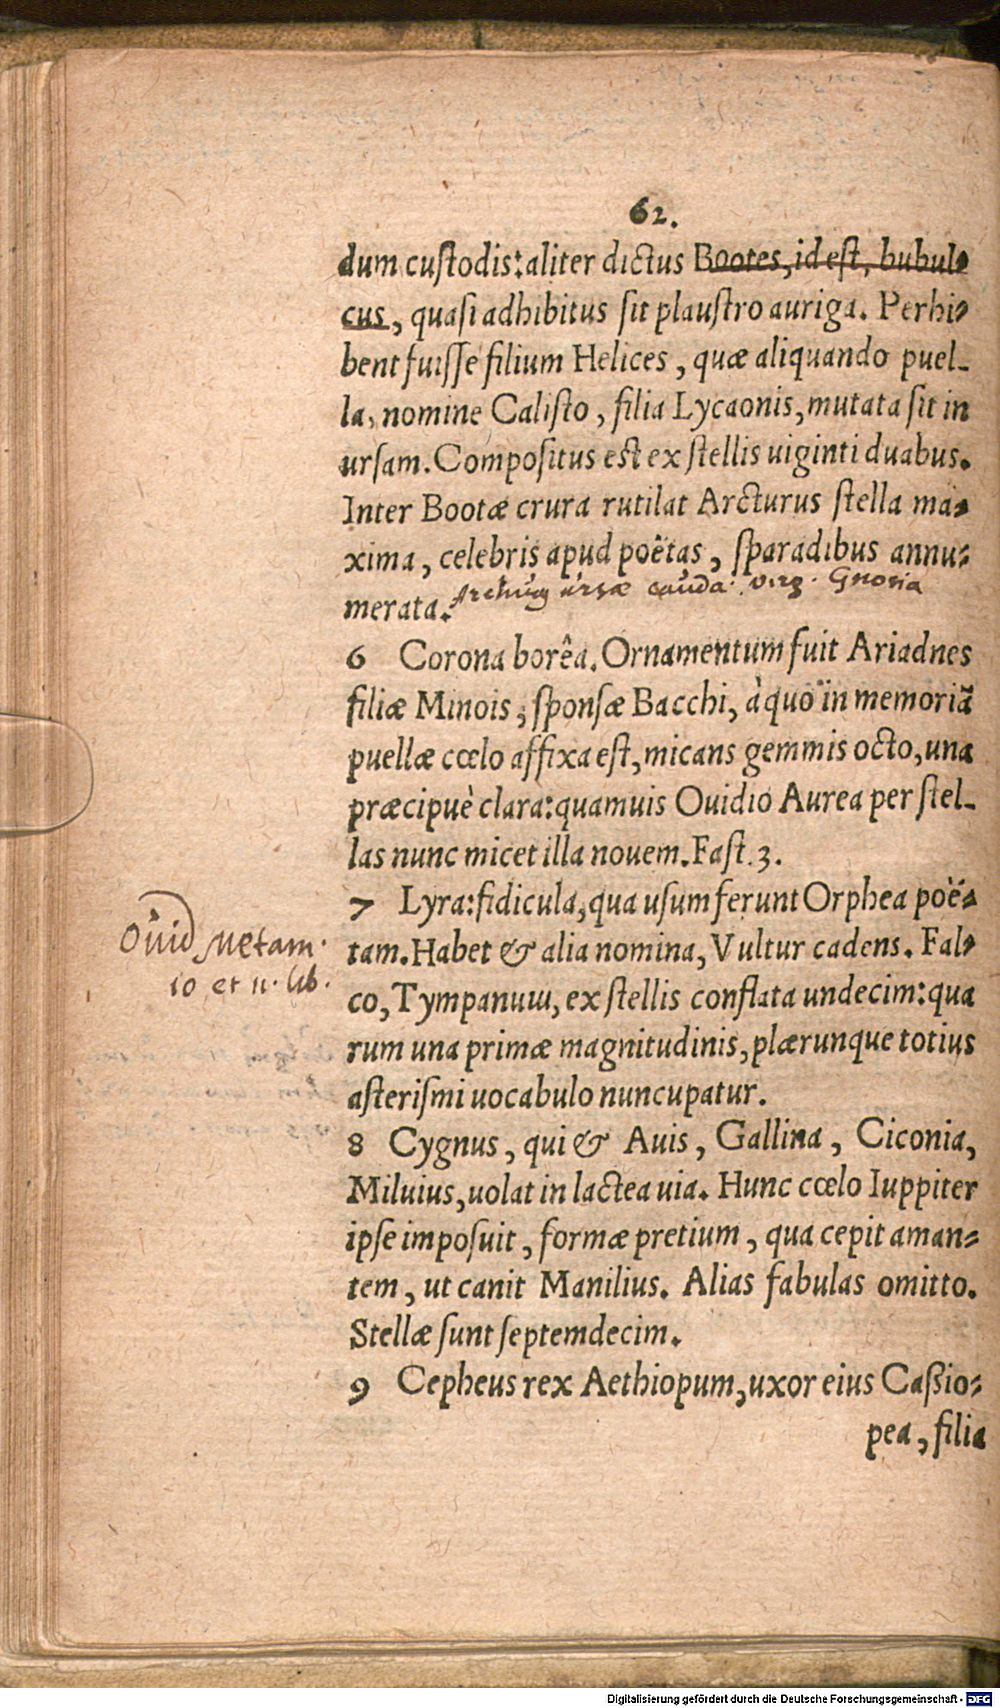 62.
dum custodis: aliter dictus Bootes, id est, bubul-
cus, quasi adhibitus sit plaustro auriga. Perhi-
bent fuisse filium Helices, quæ aliquando puel-
la, nomine Calisto, filia Lycaonis, mutata sit in
ursam. Compositus est ex stellis uiginti duabus.
Inter Bootæ crura rutilat Arcturus stella ma-
xima, celebris apud poëtas, sparadibus annu-
merata.
ursæ cauda. virg. Gnosia
6 Corona borêa. Ornamentum fuit Ariadnes
filiæ Minois, sponsæ Bacchi, à quo in memoriã
puellæ cœlo affixa est, micans gemmis octo, una
præcipuè clara: quamuis Ouidio Aurea per stel-
las nunc micet illa nouem. Fast. 3.
7 Lyra: fidicula, qua usum ferunt Orphea poë-
tam. Habet & alia nomina, Vultur cadens. Fal-
co, Tympanum, ex stellis conflata undecim: qua
rum una primæ magnitudinis, plærunque totius
asterismi uocabulo nuncupatur.
Ouid Metam.
10 et 11. lib.
8 Cygnus, qui & Auis, Gallina, Ciconia,
Miluius, uolat in lactea uia. Hunc cœlo Iuppiter
ipse imposuit, formæ pretium, qua cepit aman-
tem, ut canit Manilius. Alias fabulas omitto.
Stellæ sunt septemdecim.
9 Cepheus rex Aethiopum, uxor eius Caßio-
pea, filia
Digitalisierung gefördert durch die Deutsche Forschungsgemeinschaft - DFG